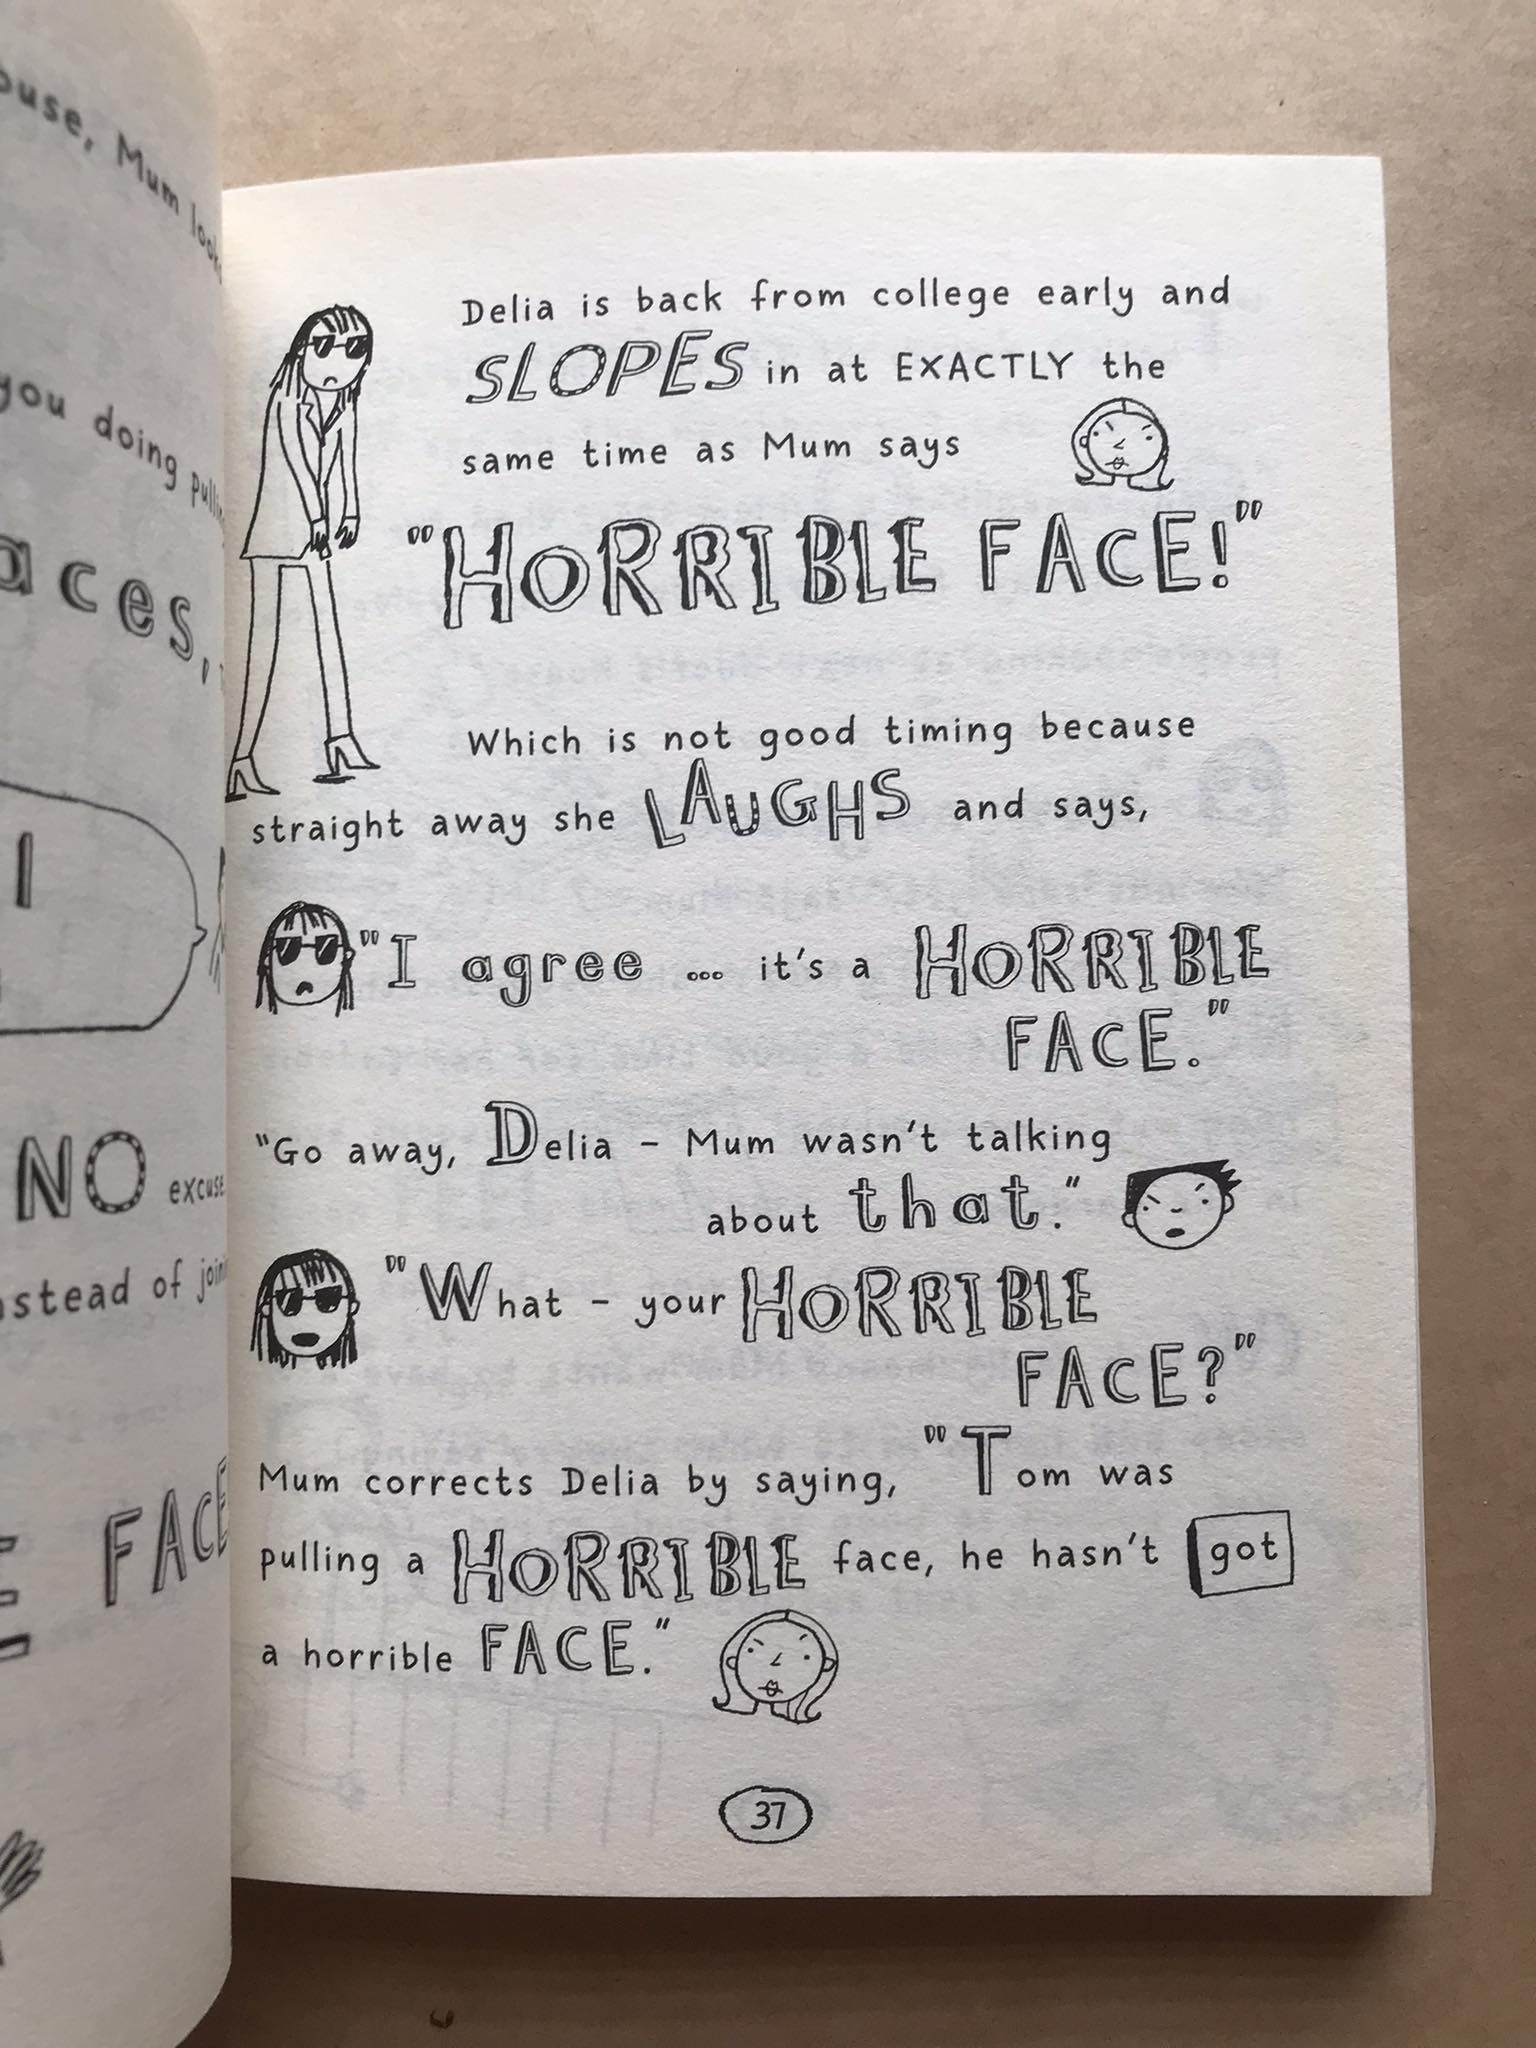 ouse, Mum looks
you doing pulling
aces,
I
NO excuse
nstead of joini
E FACE
Delia is back from college early and
SLOPES in at EXACTLY the
same time as Mum says
"HORRIBLE FACE!"
Which is not good timing because
straight away she LAUGHS and says,
"I agree ... it's a HORRIBLE
FACE."
"Go away, Delia - Mum wasn't talking
about that."
"What - your HORRIBLE
FACE?"
Mum corrects Delia by saying, "Tom was
pulling a HORRIBLE face, he hasn't got
a horrible FACE."
37